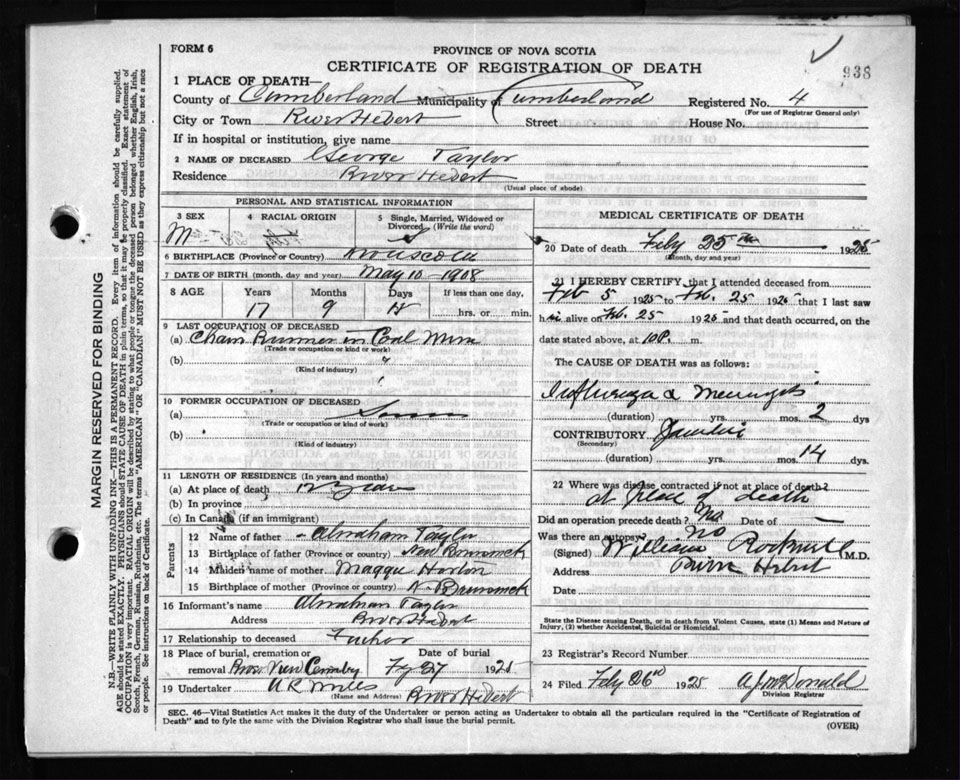 FORM 6
PROVINCE OF NOVA SCOTIA
CERTIFICATE OF REGISTRATION OF DEATH
938
1 PLACE OF DEATH—
County of Cumberland Municipality of Cumberland Registered No. 4
(For use of Registrar General only)
City or Town River Hebert Street House No.
If in hospital or institution, give name
2 NAME OF DECEASED George Taylor
Residence River Hebert
(Usual place of abode)
PERSONAL AND STATISTICAL INFORMATION
3 SEX
M
4 RACIAL ORIGIN
5 Single, Married, Widowed or Divorced (Write the word)
S
6 BIRTHPLACE (Province or Country) Nova Scotia
7 DATE OF BIRTH (month, day and year) May 10 - 1908
8 AGE Years Months Days If less than one day,
17 9 15 hrs. or min.
9 LAST OCCUPATION OF DECEASED
(a) Chain Runner in Coal Mine
(Trade or occupation or kind or work)
(b)
(Kind of industry)
10 FORMER OCCUPATION OF DECEASED
(a)
(Trade or occupation or kind of work)
(b)
(Kind of industry)
11 LENGTH OF RESIDENCE (In years and months)
(a) At place of death 12 years
(b) In province
(c) In Canada (if an immigrant)
Parents
12 Name of father - Abraham Taylor
13 Birthplace of father (Province or country) New Brunswick
14 Maiden name of mother Maggie
15 Birthplace of mother (Province or country) N. Brunswick
16 Informant's name Abraham Taylor
Address River Hebert
17 Relationship to deceased Father
18 Place of burial, cremation or Date of burial
removal River View Cemetery Fy 27 1925
19 Undertaker A R Miles
(Name and Address) River Hebert
MEDICAL CERTIFICATE OF DEATH
20 Date of death Feby 25th 1925
(Month, day and year)
21 I HEREBY CERTIFY, that I attended deceased from
Feb 5 1925 to Feb. 25 1925 that I last saw
him alive on Feb. 25 1925 and that death occurred, on
date stated above, at 10 P. m.
The CAUSE OF DEATH was as follows:
Influenza & Meningitis
(duration) yrs. mos. 2 dys
CONTRIBUTORY
(Secondary)
(duration) yrs. mos. 14 dys.
22 Where was disease contracted if not at place of death?
at place of death
Did an operation precede death? No Date of —
Was there an autopsy? No
(Signed) William Rockwell M.D.
Address River Hebert
Date
State the Disease causing Death, or in death from Violent Causes, state (1) Means and Nature of
Injury, (2) whether Accidental, Suicidal or Homicidal.
23 Registrar's Record Number
24 Filed Feby 26th 1925 A J McDonald
Division Registrar
SEC. 46—Vital Statistics Act makes it the duty of the Undertaker or person acting as Undertaker to obtain all the particulars required in the "Certificate of Registration of
Death" and to fyle the same with the Division Registrar who shall issue the burial permit.
(OVER)
MARGIN RESERVED FOR BINDING
N.B.—WRITE PLAINLY WITH UNFADING INK—THIS IS A PERMANENT RECORD. Every item of information should be carefully supplied.
AGE should be stated EXACTLY. PHYSICIANS should STATE CAUSE OF DEATH in plain terms, so that it may be properly classified. Exact statement of
OCCUPATION is very important. RACIAL ORIGIN will be described by stating to what people or tongue the deceased person belonged whether English, Irish,
Scotch, French, German, Russian, Ruthenian, etc. The terms "AMERICAN" OR "CANADIAN" MUST NOT BE USED as they express citizenship but not a race
or people. See instructions on back of Certificate.